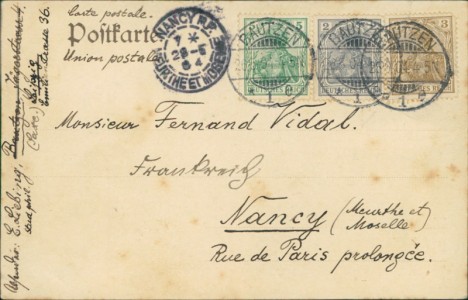 Carte postale.
Postkarte
Union postale.
NANCY R.P.
28-5
04
MEURTHE ET MOSELLE
5 2 3
BAUTZEN
BAUTZEN
1
1
Monsieur Fernand Vidal.
Frankreich
Nancy (Meurthe et
Moselle)
Rue de Paris prolongée.
E. Liebing
stud. phil.
Leipzig
36.